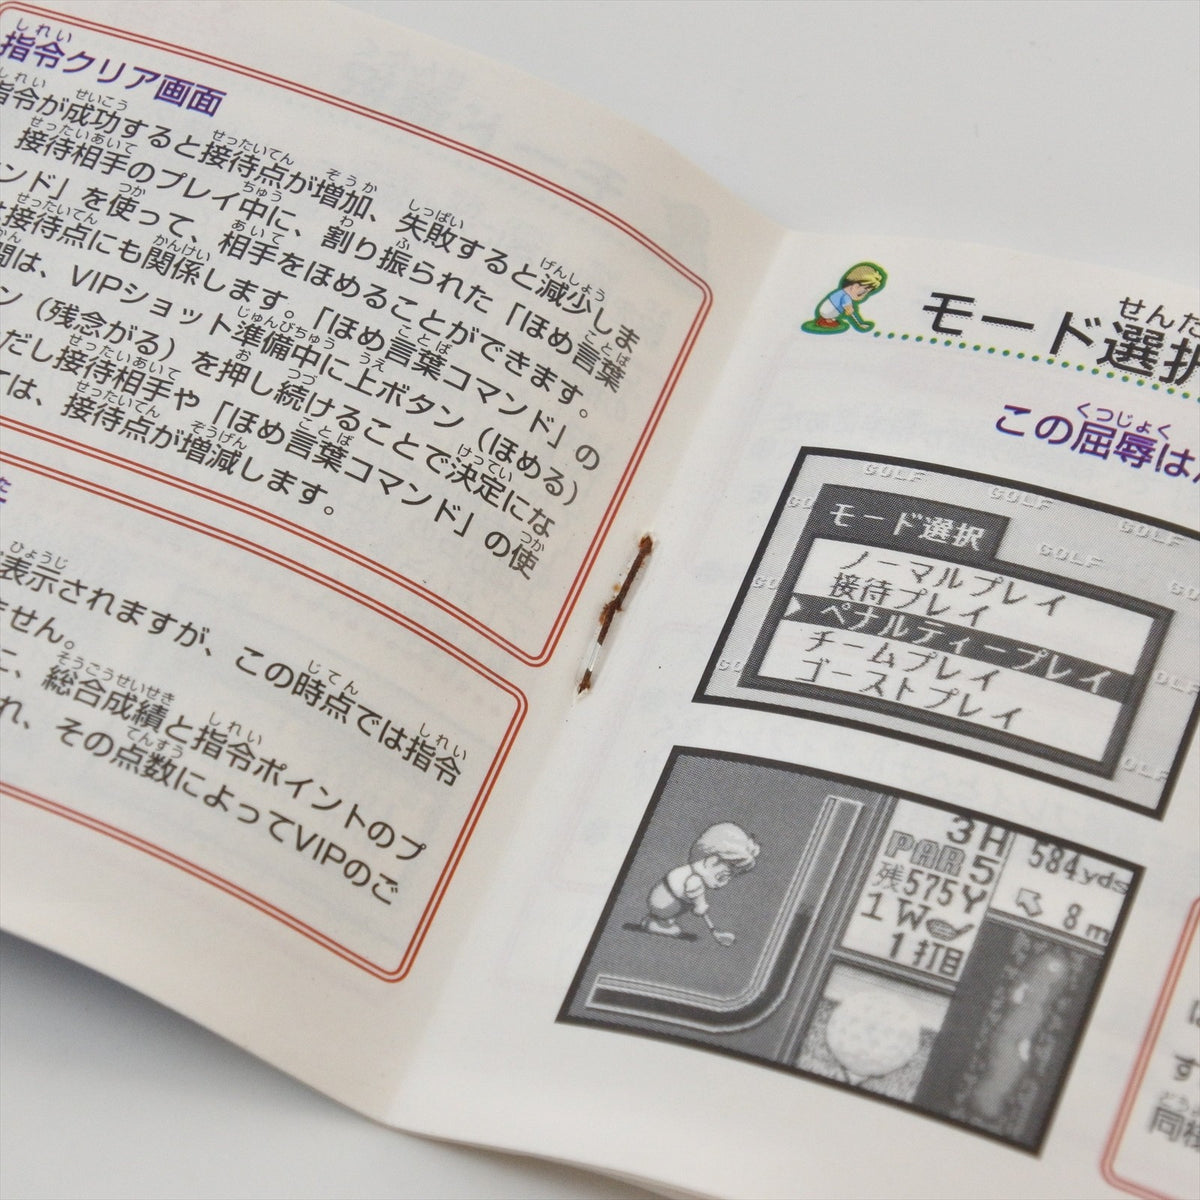 指令クリア画面
指令が成功すると接待点が増加、失敗すると減少しま
接待相手のプレイ中に、割り振られた「ほめ言葉
ンド」を使って、相手をほめることができます。
接待点にも関係します。「ほめ言葉コマンド」の
間は、VIPショット準備中に上ボタン（ほめる）
ン（残念がる）を押し続けることで決定にな
だし接待相手や「ほめ言葉コマンド」の使
ては、接待点が増減します。
表示されますが、この時点では指令
ません。
に、総合成績と指令ポイントのプ
れ、その点数によってVIPのご
モード選択
この屈辱は
GOLF GOLF GOLF
モード選択
GOLF
ノーマルプレイ
接待プレイ
ペナルティープレイ
チームプレイ
ゴーストプレイ
3H
PAR 5
残575Y
1W
1打目
584yds
8m
す
同様